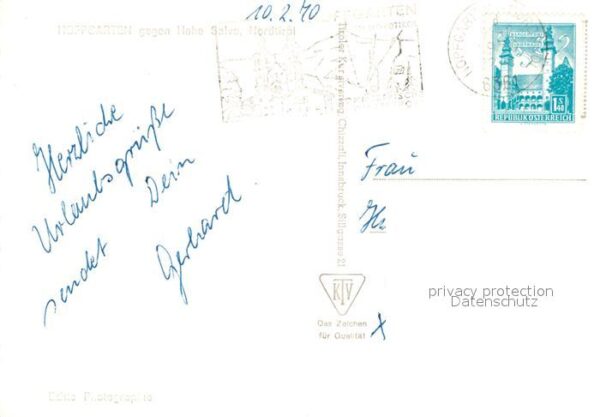 10.2.70
HOPFGARTEN gegen Hohe Salve, Nordtirol
GARTEN
HOPFGARTEN
KLAGENFURT
1S40
REPUBLIK ÖSTERREICH
Herzliche
Urlaubsgrüße
sendet Dein
Gerhard
Frau
Tiroler Kunstverlag Chizzali, Innsbruck, Sillgasse 21
KTV
Das Zeichen
für Qualität
privacy protection
Datenschutz
Echte Photographie